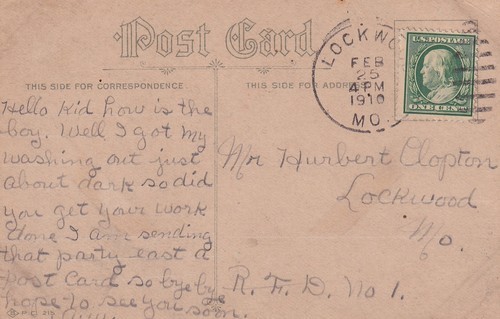 Post Card
THIS SIDE FOR CORRESPONDENCE
THIS SIDE FOR ADDRESS
LOCKWO
FEB
25
4 PM
1910
MO.
U.S. POSTAGE
ONE CENT
Hello Kid how is the
boy. Well I got my
washing out just
about dark so did
you get your work
done I am sending
that party east a
post Card so bye bye
hope to see you soon.
Mr Hurbert Clopton
Lockwood
Mo.
R. F. D. No 1.